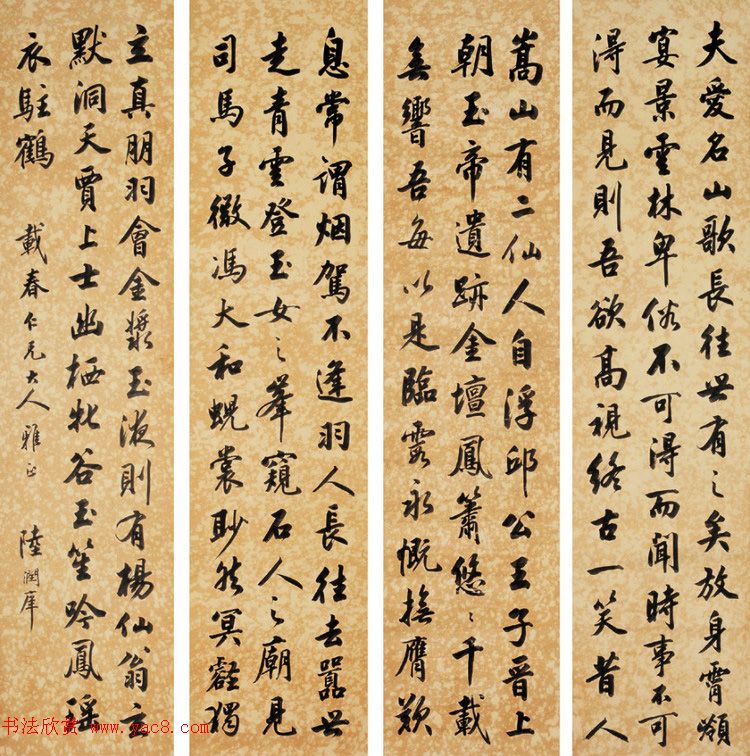 夫愛名山歌長往世有之矣放身霄嶺
宴景雲林卑俗不可得而聞時事不可
得而見則吾欲高視終古一笑昔人
嵩山有二仙人自浮邱公王子晉上
朝玉帝遺跡金壇鳳簫悠〻千載
無響吾每以是臨霞永慨撫膺歎
息常謂烟駕不逢羽人長往去囂世
走青雲登玉女之峯窺石人之廟見
司馬子微馮大和蜺裳眇然冥壑獨
立真朋羽會金漿玉液則有楊仙翁玄
默洞天賈上士幽栖牝谷玉笙吟鳳瑤
衣駐鶴 載春仁兄大人雅正 陸潤庠
书法欣赏 www.yac8.com